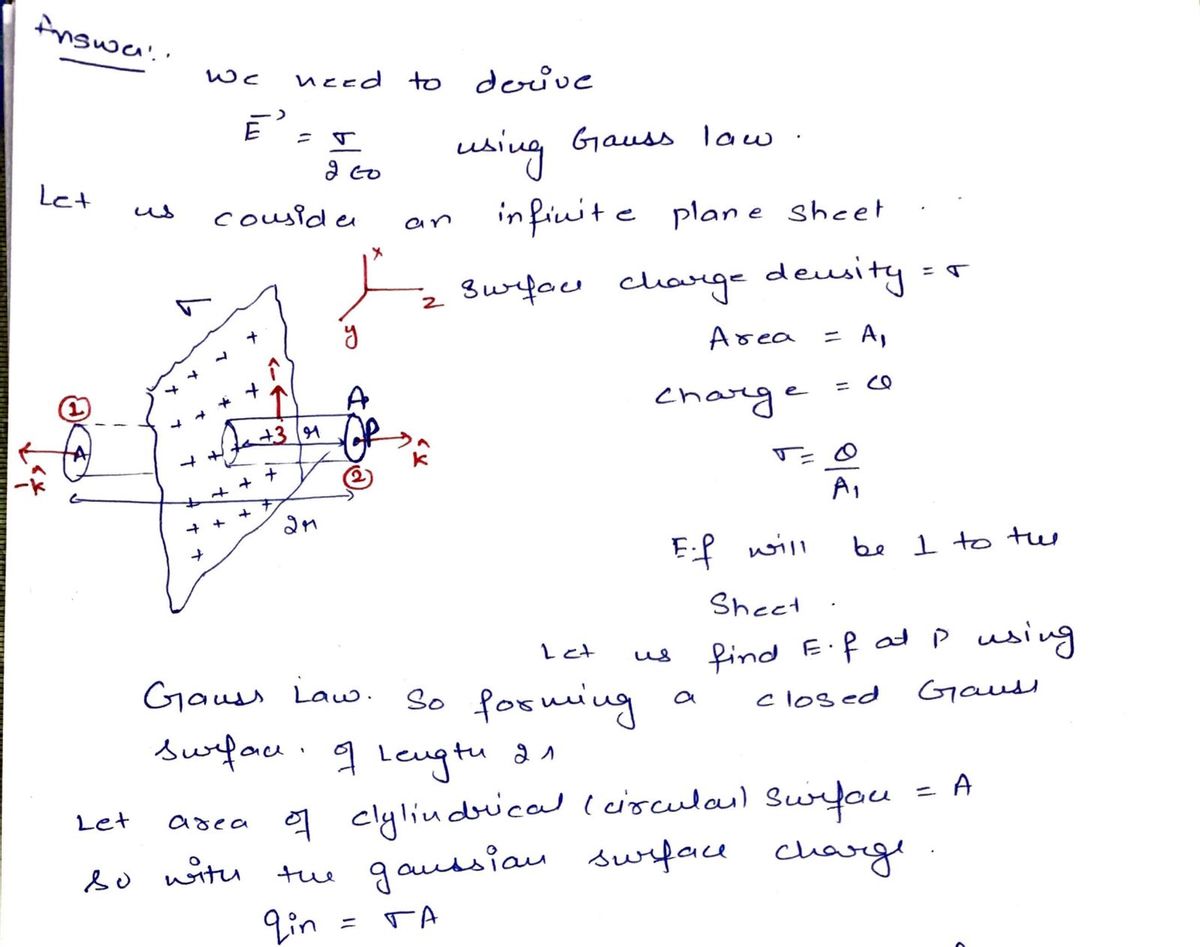 Answer:.
We need to derive
E⃗ = σ / 2ϵ0 using Gauss law.
Let us consider an infinite plane sheet.
Surface charge density = σ
Area = A1
Charge = Q
σ = Q / A1
σ
x
y
z
î
1
A
-k̂
3
r
A
P
k̂
2
2r
E.f will be ⊥ to the
Sheet.
Let us find E.f at P using
Gauss Law. So forming a closed Gauss
surface. of Length 2r
Let area of clylindrical (circular) surface = A
So with the gaussian surface charge.
qin = σA